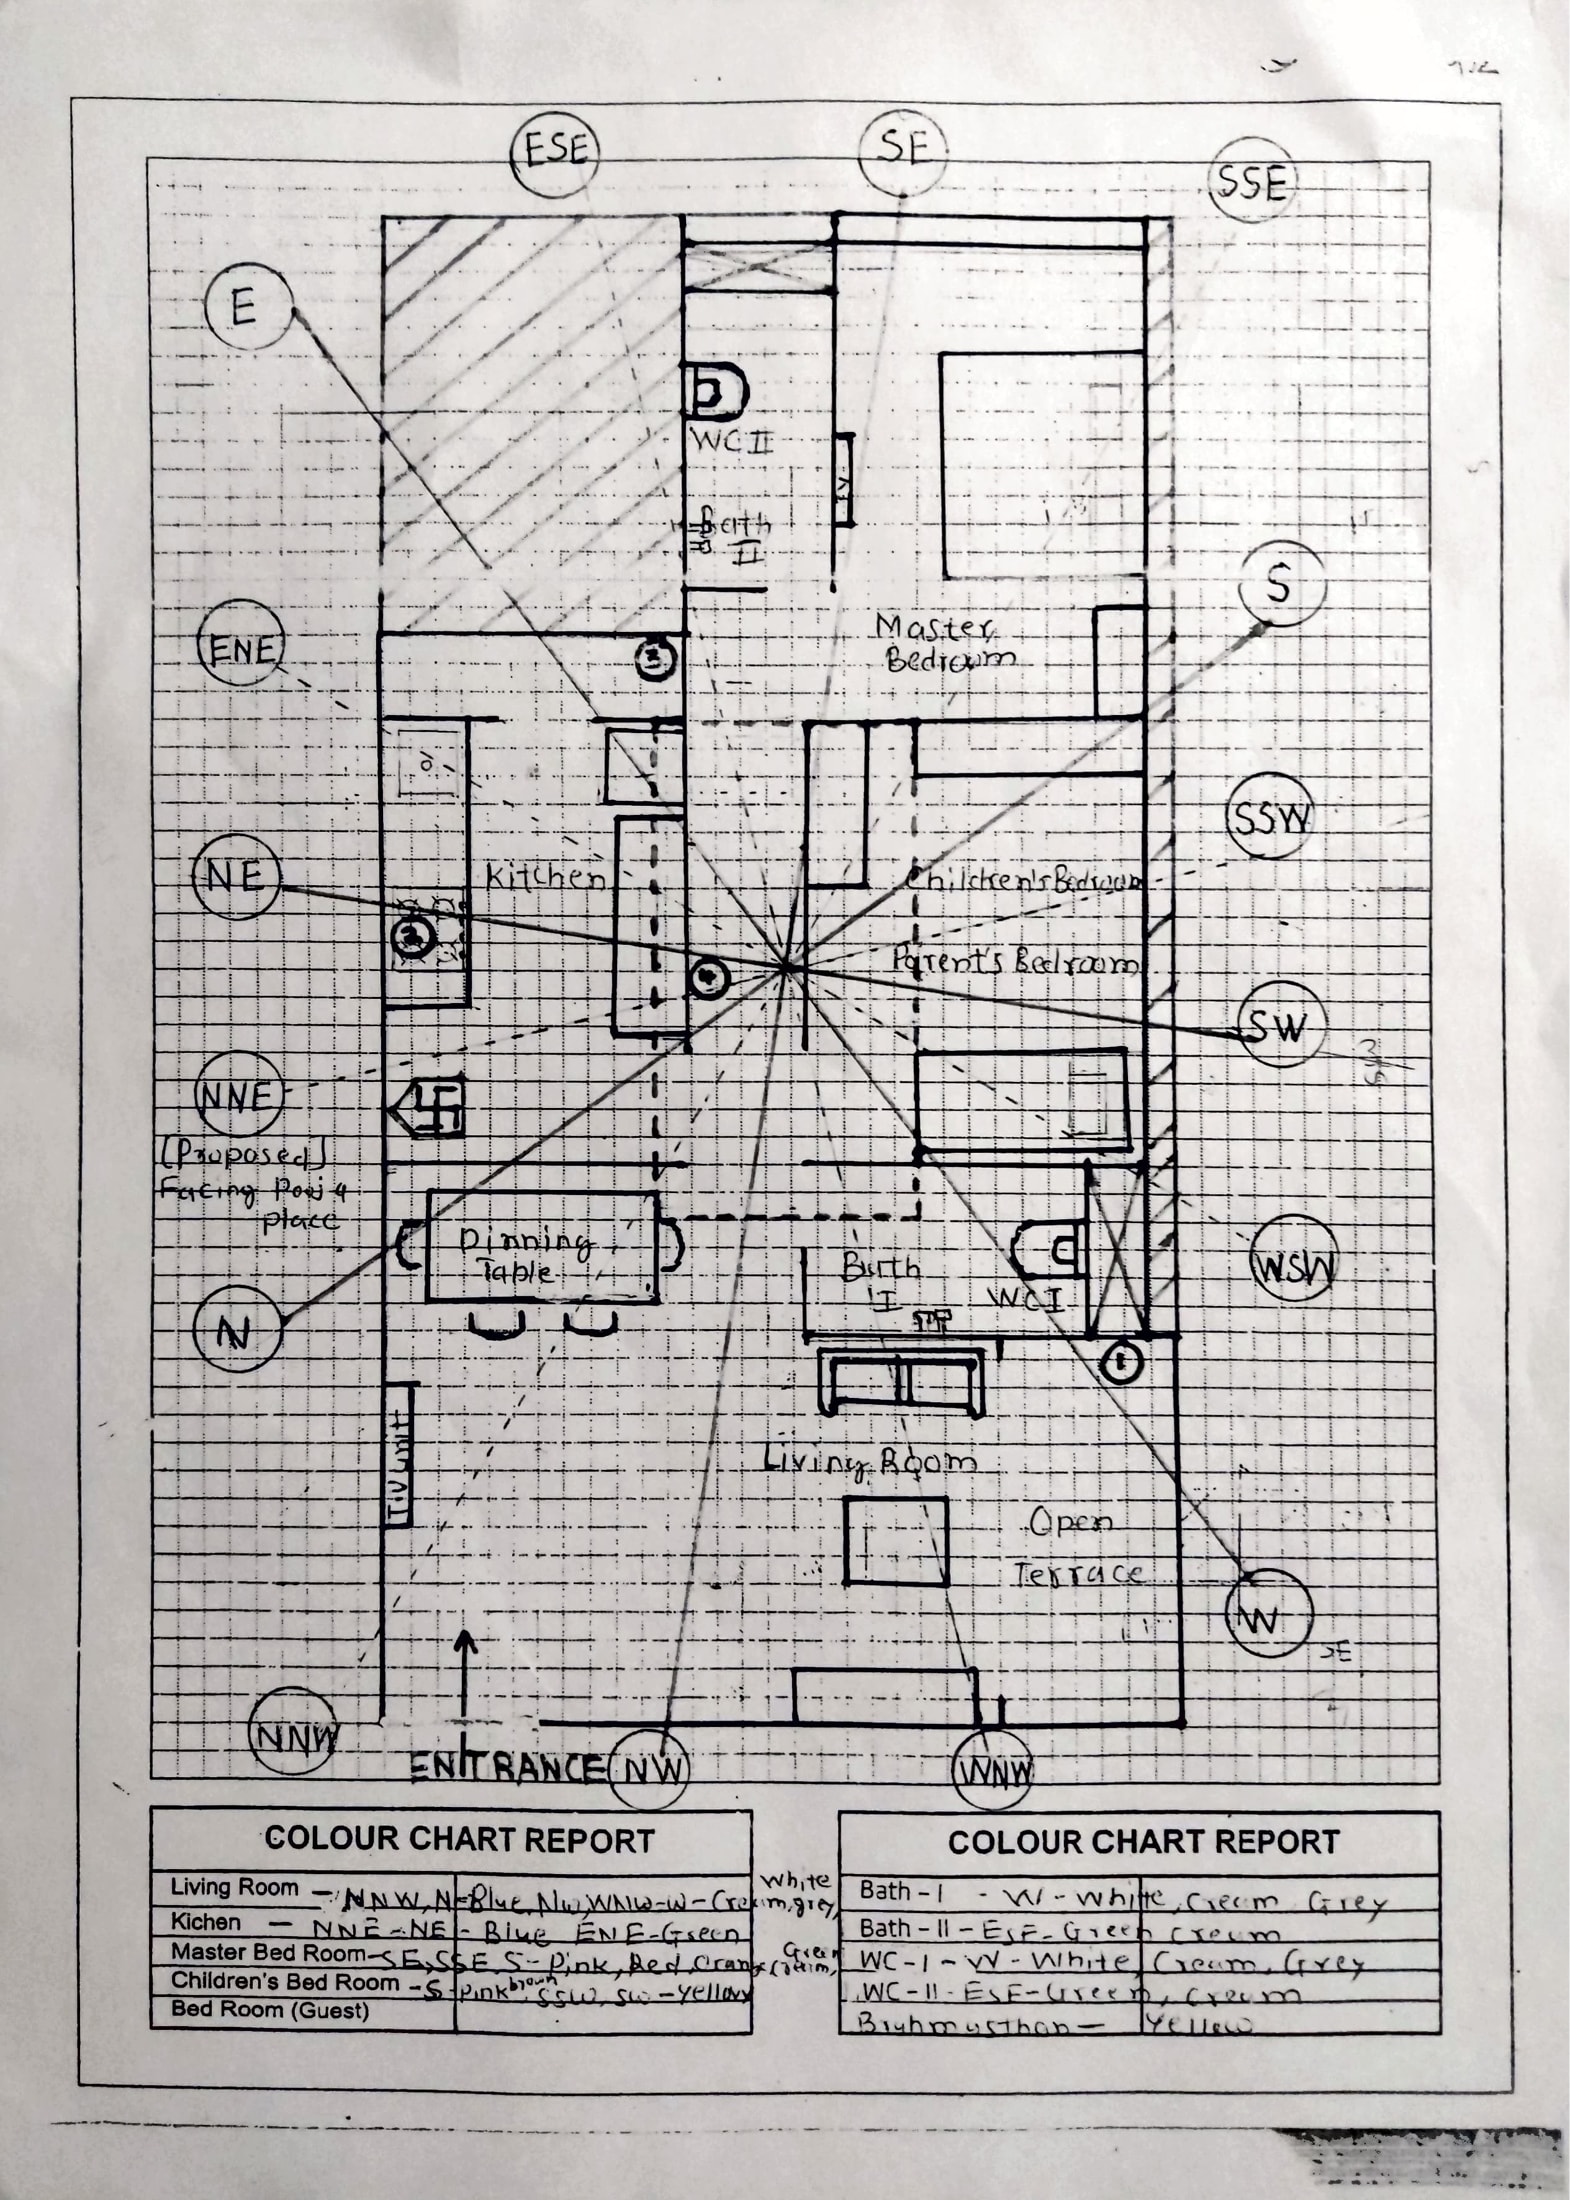 ESE
SE
SSE
E
WC II
TV
Bath
II
S
Master
Bedroom
ENE
3
SSW
NE
Kitchen
Children's Bedroom
2
4
Parent's Bedroom
SW
NNE
[Proposed]
Facing Pooja
place
Dinning
Table
Bath
I
WC I
WSW
N
1
T.V unit
Living Room
Open
Terrace
W
SE
NNW
ENTRANCE
NW
WNW
COLOUR CHART REPORT
Living Room - NNW, N-Blue, NW, WNW-W-Cream, grey, White
Kichen - NNE-NE- Blue ENE-Green
Master Bed Room-SE, SSE, S- Pink, Red, Cream, Green
Children's Bed Room -S-Pink brown, SSW, SW-Yellow
Bed Room (Guest)
COLOUR CHART REPORT
Bath-I - W-White, Cream, Grey
Bath-II-ESE-Green Cream
WC-I-W-White, Cream, Grey
WC-II-ESE-Green, Cream
Bruhmusthan- Yellow